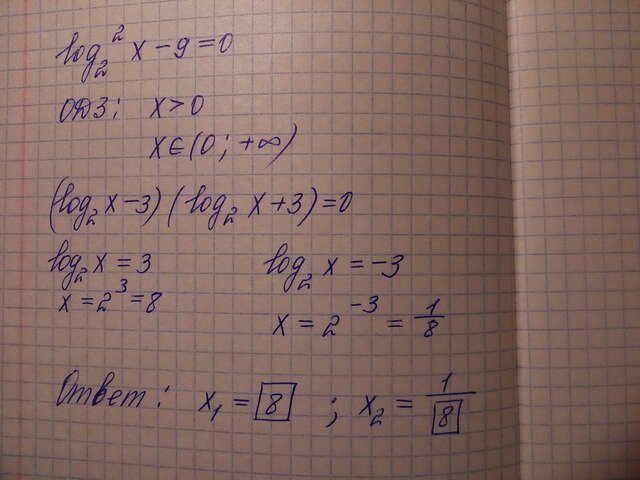 log₂² x − 9 = 0
ОДЗ: x > 0
x ∈ (0; +∞)
(log₂ x − 3)(log₂ x + 3) = 0
log₂ x = 3 log₂ x = −3
x = 2³ = 8 x = 2⁻³ = 1/8
Ответ: x₁ = 8 ; x₂ = 1/8